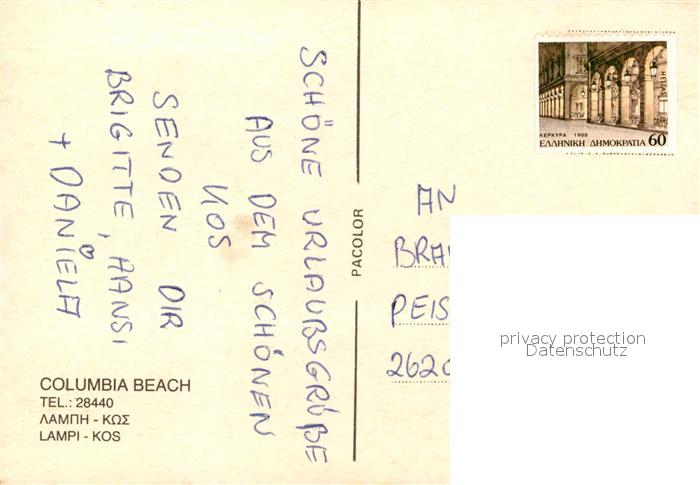 SCHÖNE URLAUBSGRÜßE
AUS DEM SCHÖNEN
KOS
SENDEN DIR
BRIGITTE, HANSI
+ DANIELA
COLUMBIA BEACH
TEL.: 28440
ΛΑΜΠΗ - ΚΩΣ
LAMPI - KOS
PACOLOR
HELLAS
ΚΕΡΚΥΡΑ 1988
ΕΛΛΗΝΙΚΗ ΔΗΜΟΚΡΑΤΙΑ 60
AN
privacy protection
Datenschutz